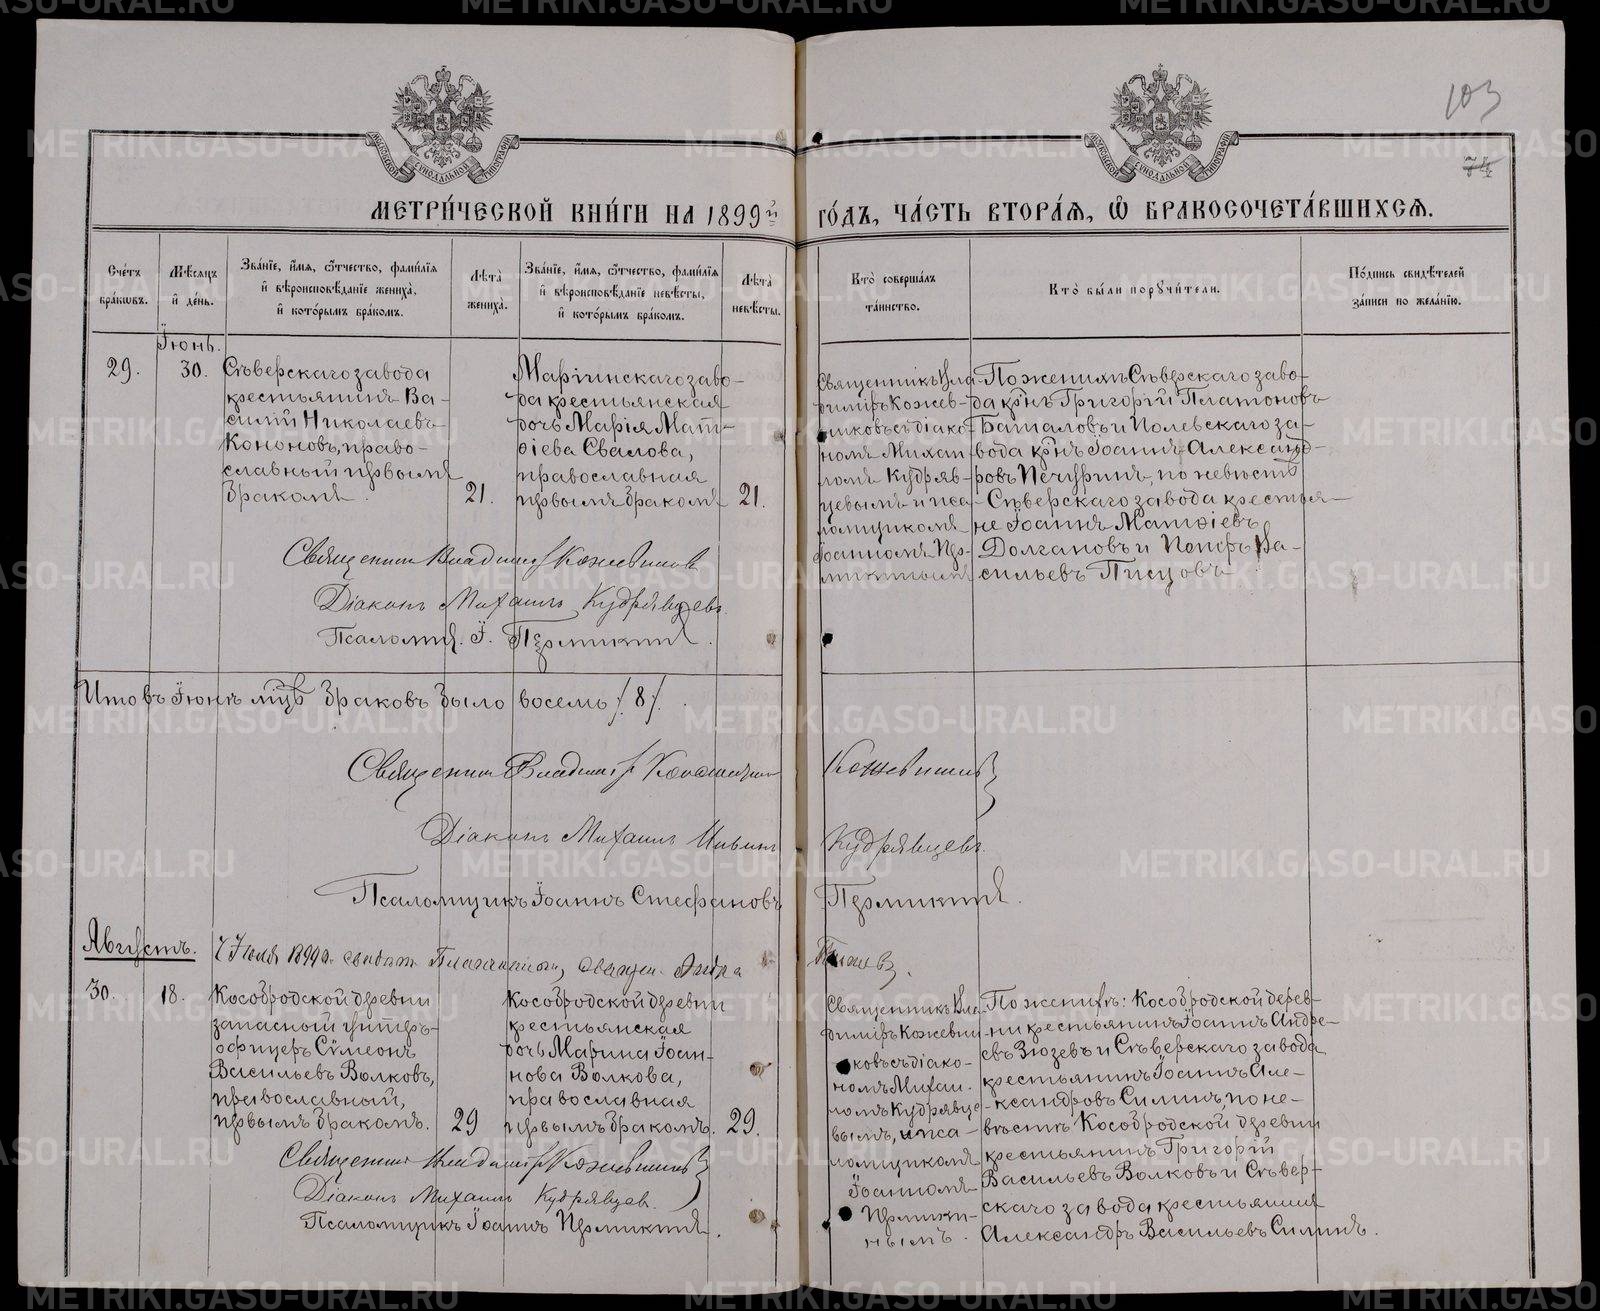 103
74
МОСКОВСКОЙ СѴНОДАЛЬНОЙ ТИПОГРАФІИ
МОСКОВСКОЙ СѴНОДАЛЬНОЙ ТИПОГРАФІИ
МЕТРИ́ЧЕСКОЙ КНИ́ГИ НА 1899й ГО́ДЪ, ЧА́СТЬ ВТОРА́Я, Ѡ БРАКОСОЧЕТА́ВШИХСЯ.
Сче́тъ бра́кѡвъ.
Мѣ́сяцъ и҆ де́нь.
Зва́нїе, и҆́мя, ѻ҆́тчество, фами́лїя и҆ вѣроисповѣ́данїе жениха̀, и҆ кото́рымъ бра́комъ.
Лѣ́та жениха̀.
Зва́нїе, и҆́мя, ѻ҆́тчество, фами́лїя и҆ вѣроисповѣ́данїе невѣ́сты, и҆ кото́рымъ бра́комъ.
Лѣ́та невѣ́сты.
Кто̀ соверша́лъ та́инство.
Кто̀ бы́ли порꙋчи́тели.
По́дпись свидѣ́телей за́писи по жела́нїю.
Іюнь.
29.
30.
Сѣверскаго завода
крестьянинъ Ва-
силій Николаевъ
Кононовъ, право-
славный первымъ
бракомъ.
21.
Маріинскаго заво-
да крестьянская
дочь Марія Мат-
ѳіева Свалова,
православная
первымъ бракомъ
21.
Священникъ Вла-
диміръ Кожев-
никовъ съ діако-
номъ Михаи
ломъ Кудряв-
цевымъ и пса-
ломщикомъ
Іоанномъ Пер-
микинымъ
По женихѣ Сѣверскаго заво-
да кр͠нъ Григорій Платоновъ
Баталовъ и Полевскаго за-
вода кр͠нъ Іоаннъ Александ-
ровъ Печуринъ, по невѣстѣ
Сѣверскаго завода крестья-
не Іоаннъ Матѳіевъ
Долгановъ и Порфирій Ва-
сильевъ Писцовъ
Священникъ Владиміръ Кожевниковъ
Діаконъ Михаилъ Кудрявцевъ
Псаломщ. І. Пермикинъ.
Итого въ Іюнѣ мцѣ браковъ было восемь /8/.
Священникъ Владиміръ Кожевниковъ
Діаконъ Михаилъ Кудрявцевъ.
Псаломщикъ Іоаннъ Стефановъ Пермикинъ.
Августъ.
7 Іюля 1899 г.
30.
18.
Кособродской деревни
запасный унтеръ-
офицеръ Сѷмеонъ
Васильевъ Волковъ,
православный,
первымъ бракомъ.
29
Кособродской деревни
крестьянская
дочь Марина Іоан-
нова Волкова,
православная
первымъ бракомъ.
29.
Священникъ Вла-
диміръ Кожевни-
ковъ съ діако-
номъ Михаи-
ломъ Кудрявце-
вымъ, и пса-
ломщикомъ
Іоанномъ
Пермики-
нымъ.
По женихѣ: Кособродской дерев-
ни крестьянинъ Іоаннъ Андре-
евъ Зюзевъ и Сѣверскаго завода
крестьянинъ Іоаннъ Але-
ксандровъ Силинъ, по не-
вѣстѣ Кособродской деревни
крестьянинъ Григорій
Васильевъ Волковъ и Сѣвер-
скаго завода крестьянинъ
Александръ Васильевъ Силинъ.
Священникъ Владиміръ Кожевниковъ
Діаконъ Михаилъ Кудрявцевъ.
Псаломщикъ Іоаннъ Пермикинъ.
METRIKI.GASO-URAL.RU